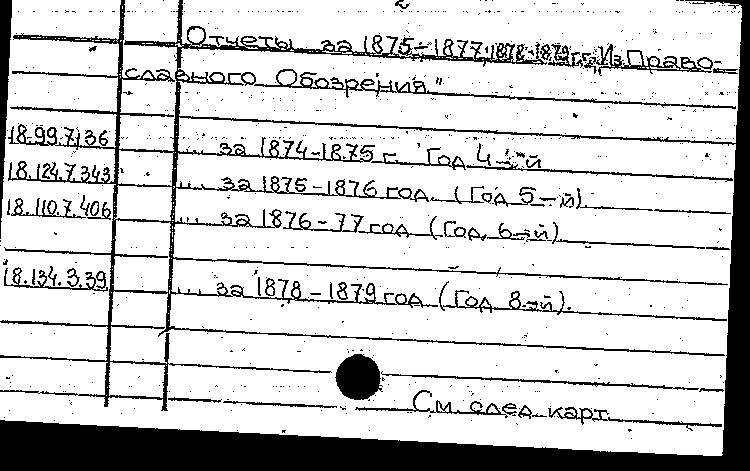 2
Отчеты за 1875-1877; 1878-1879 г.г. „Из Право-
славного Обозрения"
18.99.7.136 ... за 1874-1875 г. Год 4-й
18.124.7.343 ... за 1875-1876 год. (Год 5-й)
18.110.7.406 ... за 1876-77 год (Год, 6-й)
18.134.3.39 ... за 1878-1879 год (Год 8-й).
См. след. карт.